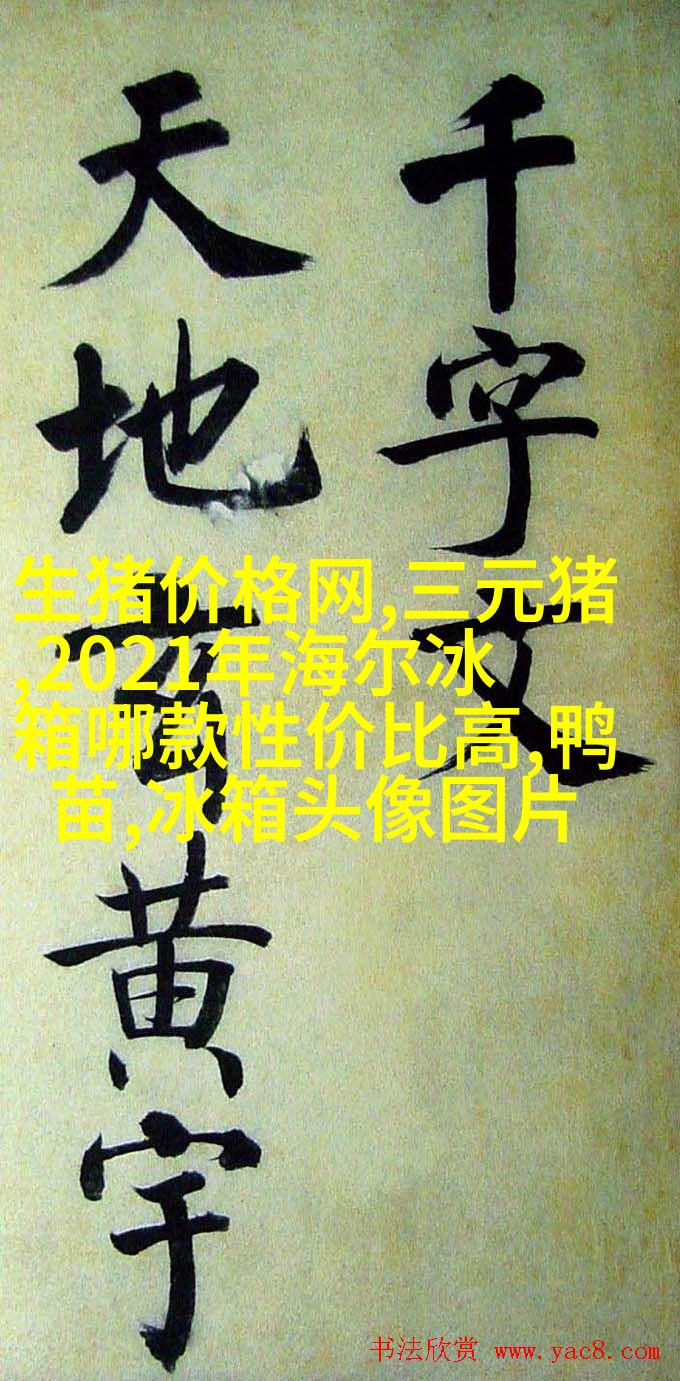 千字文
天地黄宇
生猪价格网,三元猪
,2021年海尔冰
箱哪款性价比高,鸭
苗,冰箱头像图片
书法欣赏 www.yac8.com